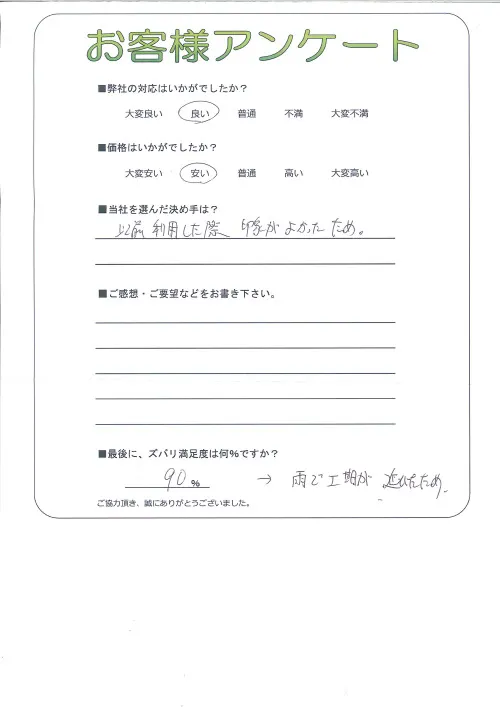 お客様アンケート
■弊社の対応はいかがでしたか？
大変良い 良い 普通 不満 大変不満
■価格はいかがでしたか？
大変安い 安い 普通 高い 大変高い
■当社を選んだ決め手は？
以前利用した際 印象がよかったため。
■ご感想・ご要望などをお書き下さい。
■最後に、ズバリ満足度は何％ですか？
90 % → 雨で工期が 延びたため。
ご協力頂き、誠にありがとうございました。